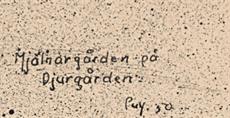 Mjölnargården på
Djurgården.